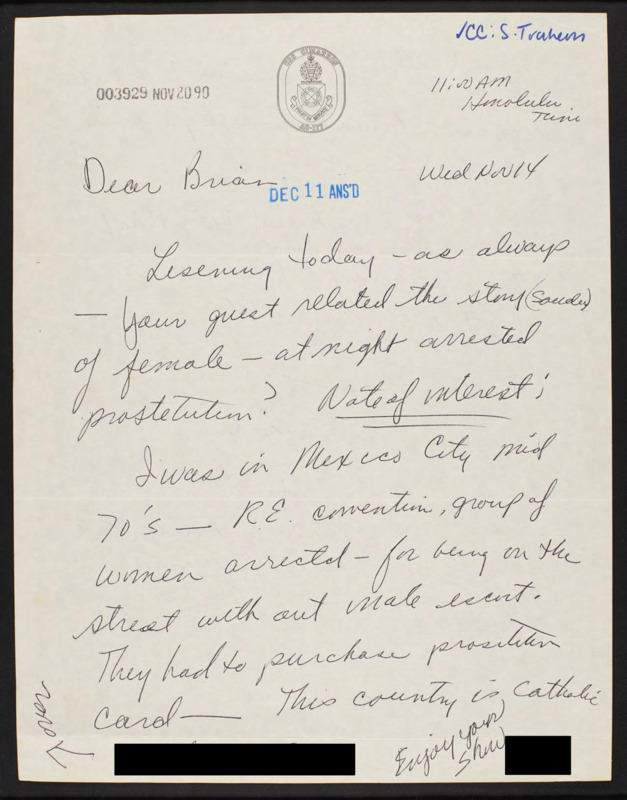 ✓CC: S. Trahern
003929 NOV 20 90
USS CIMARRON
AO-177
11:00 AM
Honolulu
Time
Wed Nov 14
Dear Brian
DEC 11 ANS'D
Lisening today – as always
– your guest related the story (Saudi)
of female – at night arrested
prostetution? Note of interest;
I was in Mexico City mid
70's – R.E. convention, group of
women arrested – for being on the
street with out male escort.
They had to purchase prostitution
card – This country is Catholic
over
Enjoy your
Show